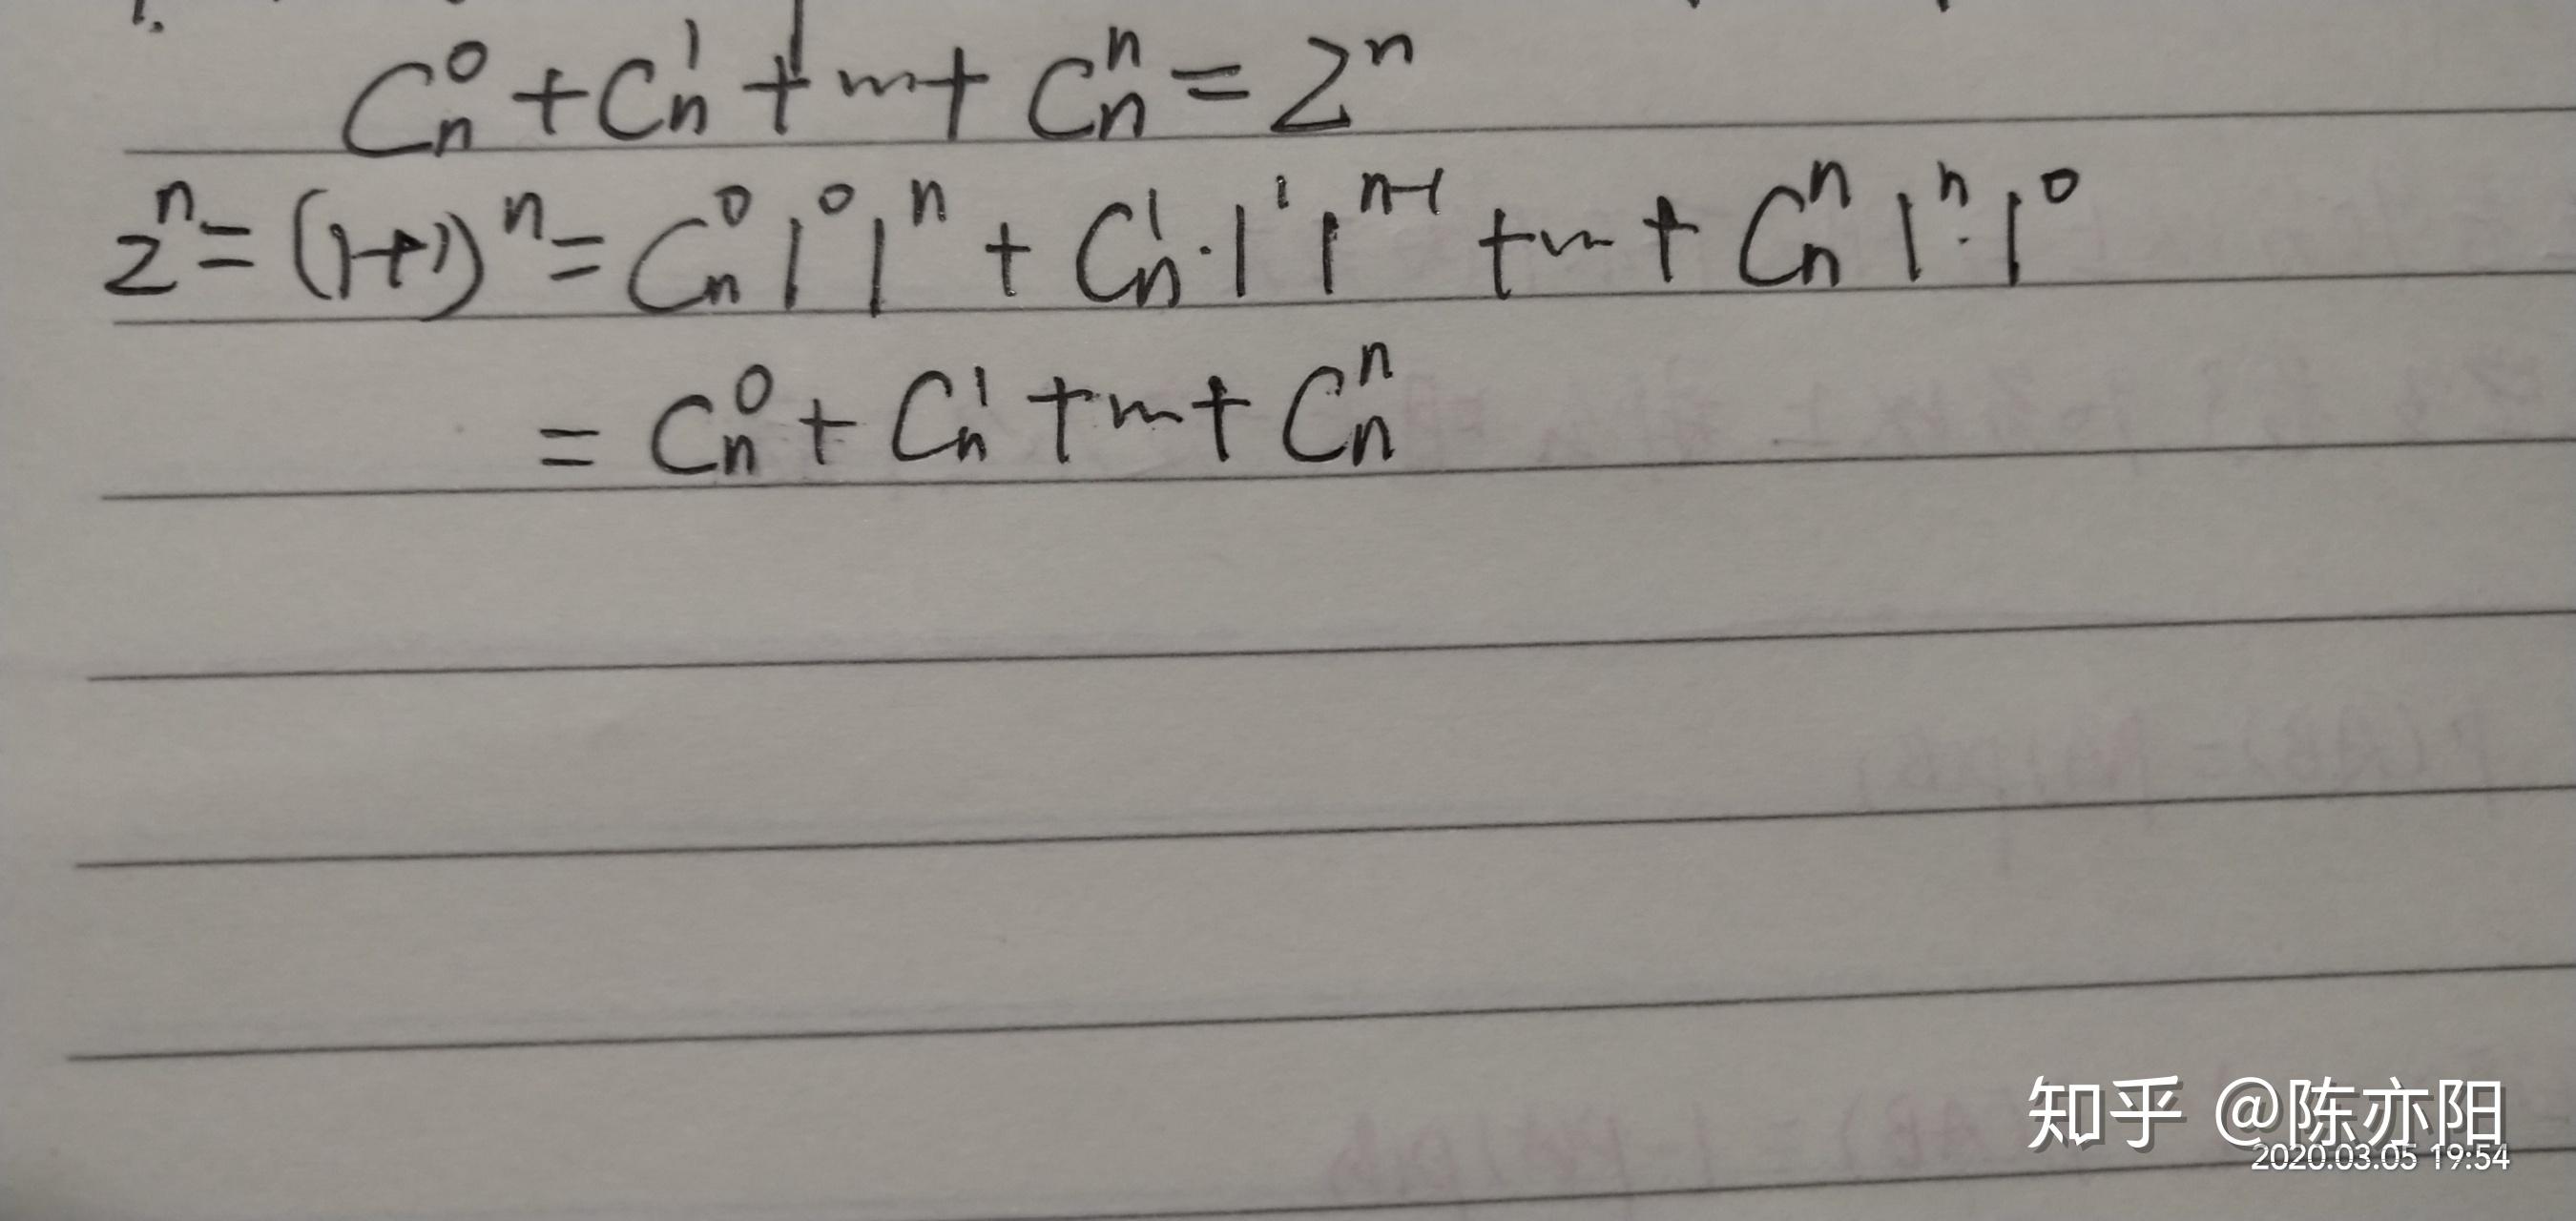 1.
C_n^0 + C_n^1 + … + C_n^n = 2^n
2^n = (1+1)^n = C_n^0 1^0 1^n + C_n^1 · 1^1 1^{n-1} + … + C_n^n 1^n · 1^0
= C_n^0 + C_n^1 + … + C_n^n
知乎 @陈亦阳
2020.03.05 19:54